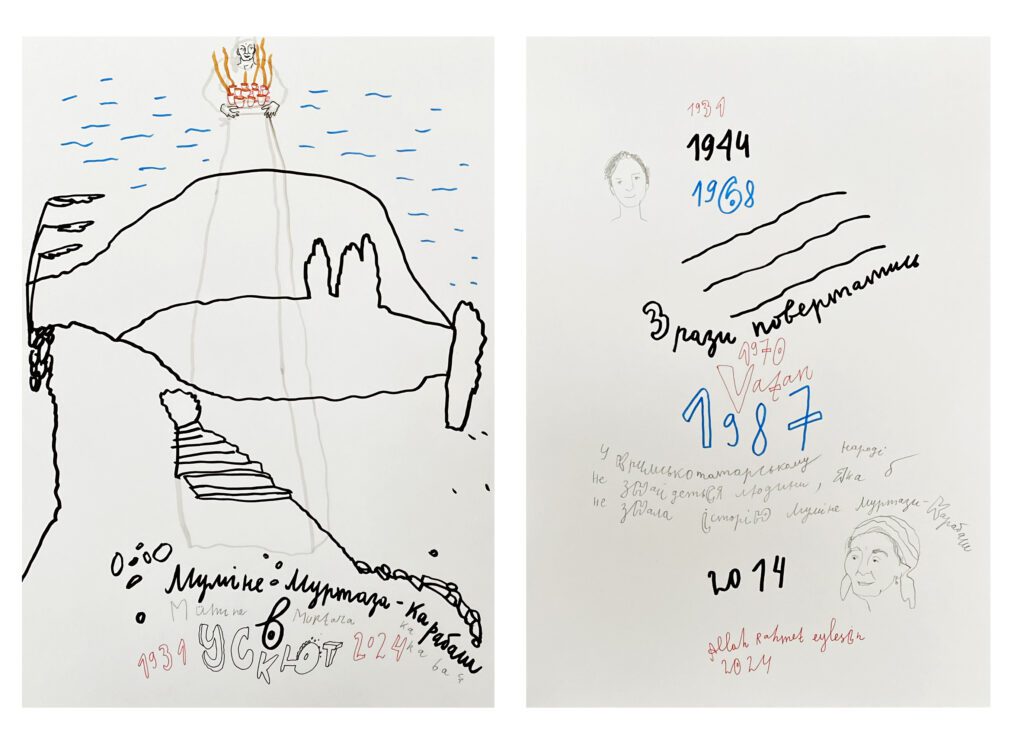 Муміне Муртаза-Карабаш
в
1931 УСКЮТ 2024
1931
1944
1968
3 рази повертатись
1970
Vatan
1987
У кримськотатарському народі
не знайдеться людини, яка б
не знала історію Муміне Муртази-Карабаш
2014
Allah Rahmet eylesin
2024